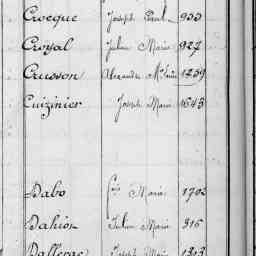 Crocque Joseph Paul 933
Croyal Julien Marie 927
Crusson Alexandre Marie 1259
Cuizinier Joseph Marie 1643
Dabo Marie 1702
Dahion Julien Marie 316
Dallerac Joseph Marie